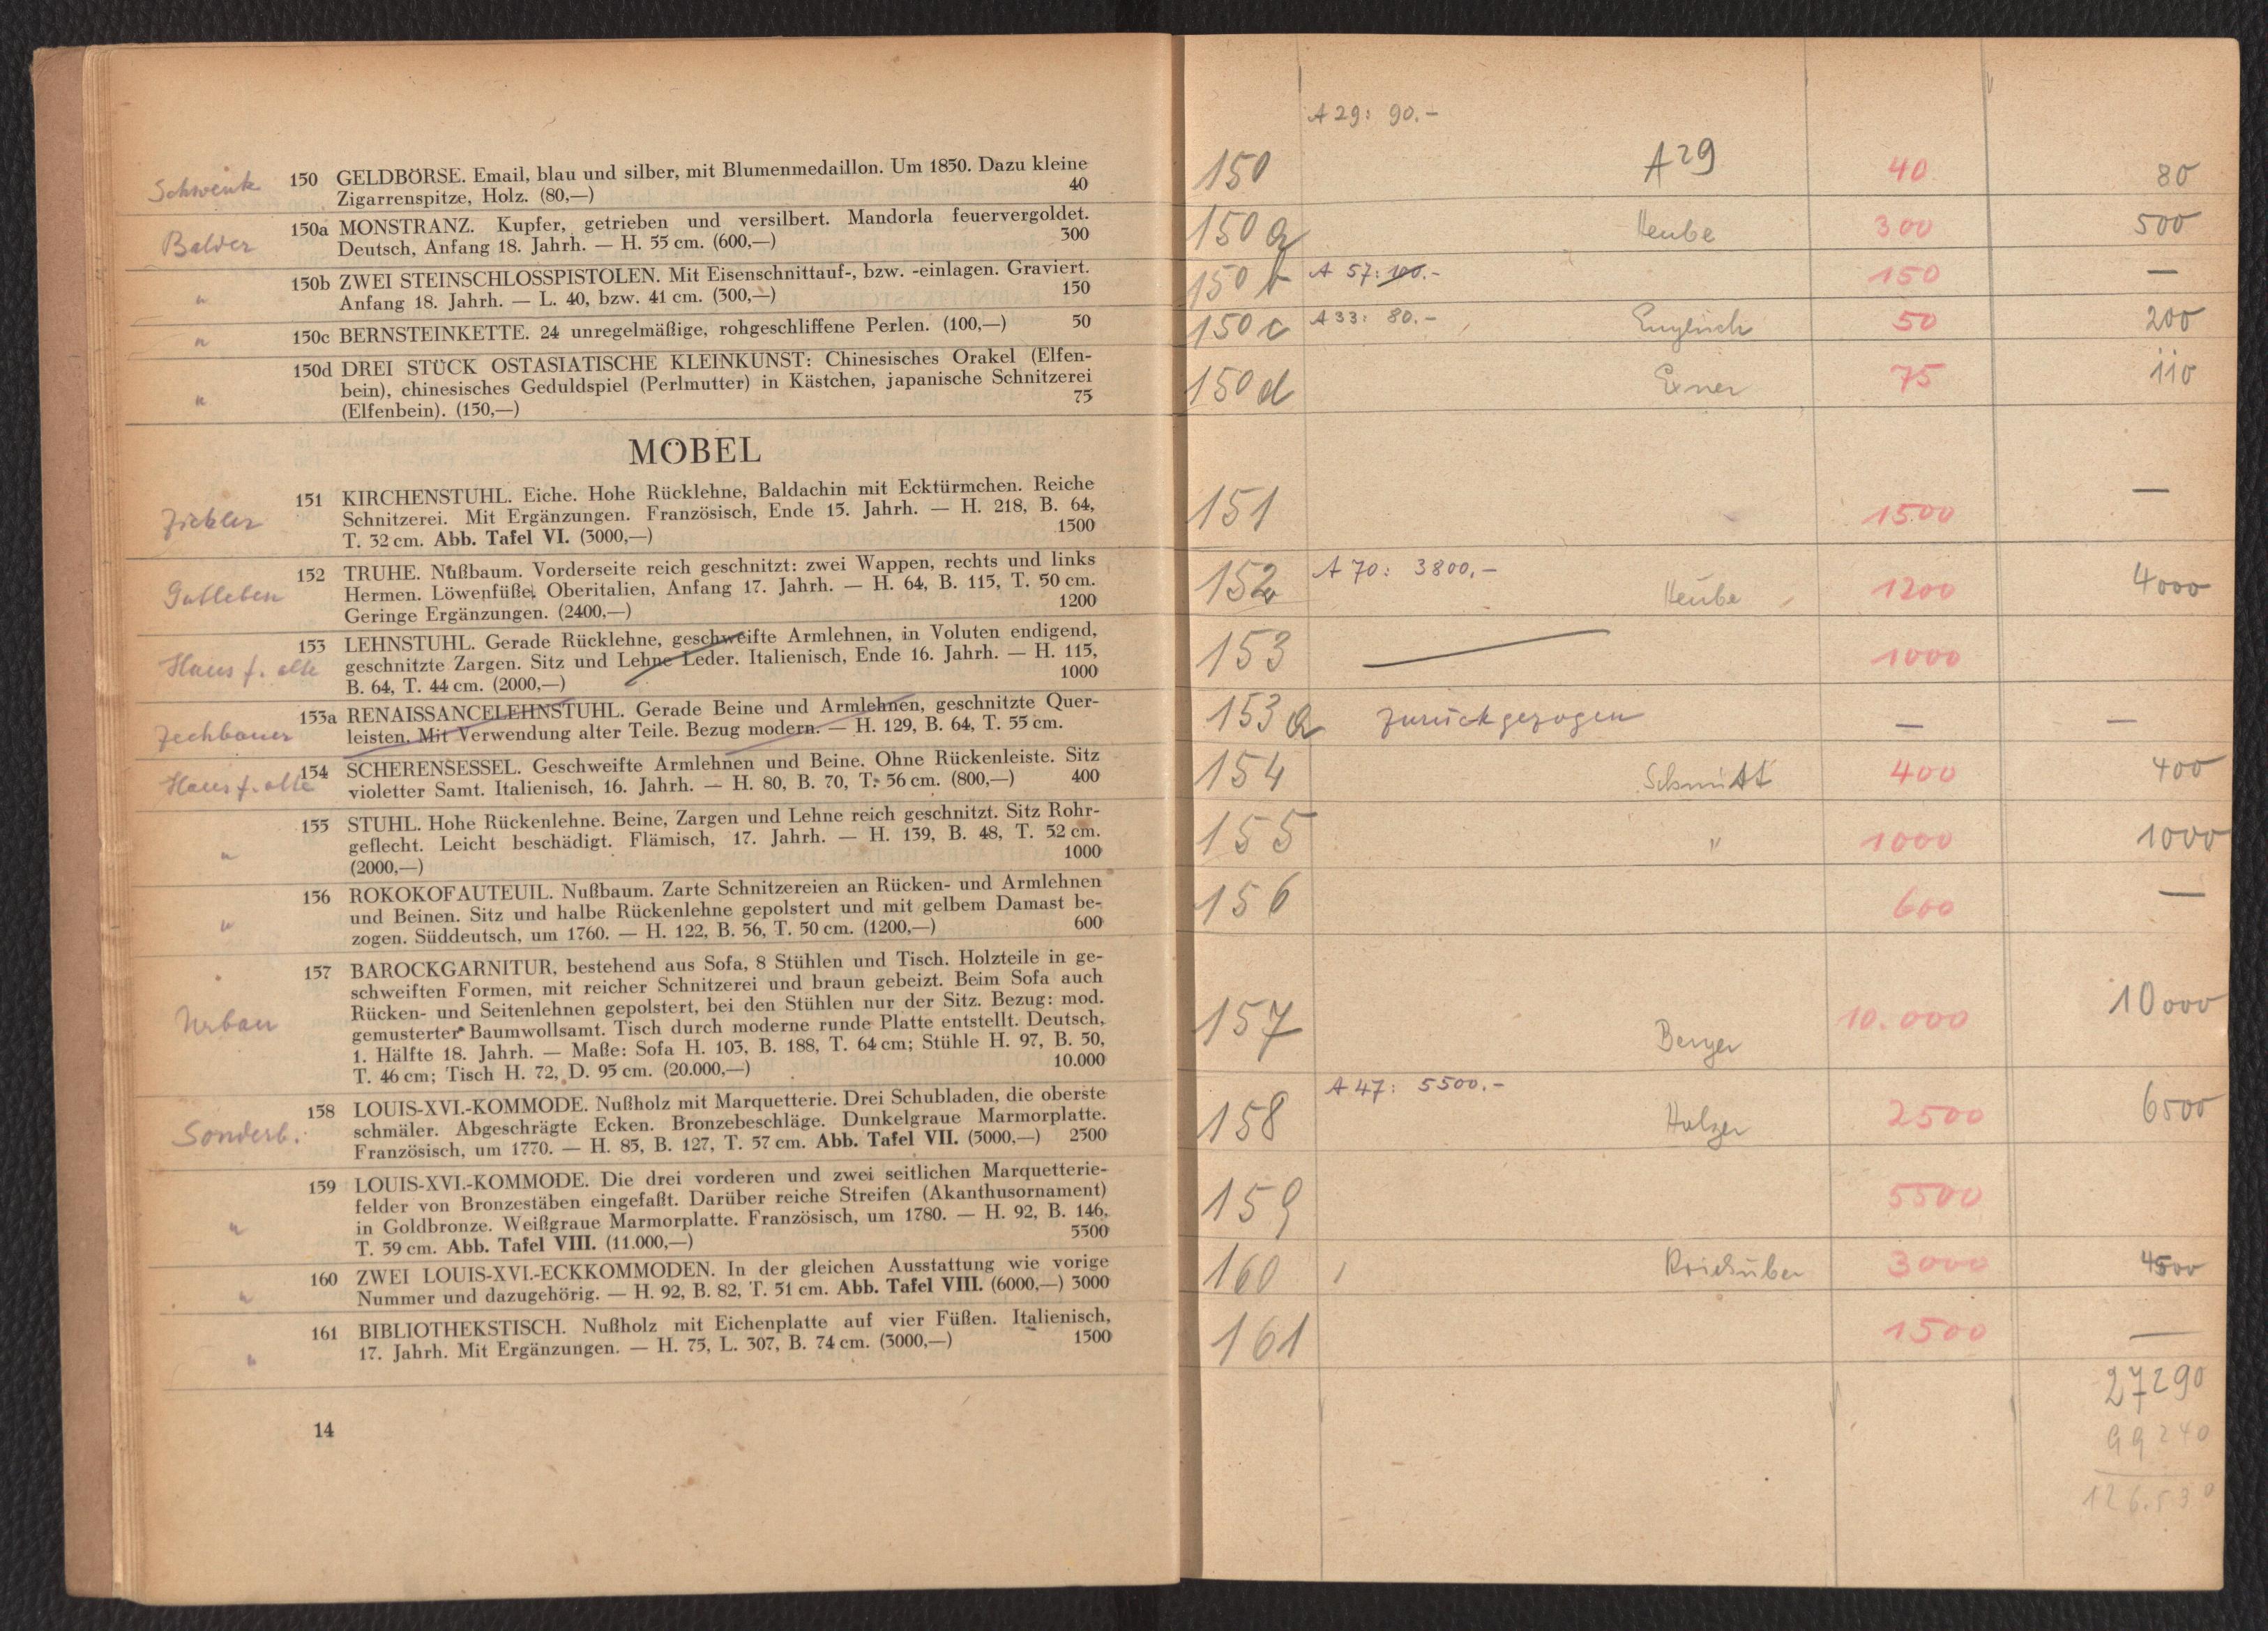 Schwenk
150 GELDBÖRSE. Email, blau und silber, mit Blumenmedaillon. Um 1850. Dazu kleine
Zigarrenspitze, Holz. (80,—) 40
Balder
150a MONSTRANZ. Kupfer, getrieben und versilbert. Mandorla feuervergoldet.
Deutsch, Anfang 18. Jahrh. — H. 55 cm. (600,—) 300
"
150b ZWEI STEINSCHLOSSPISTOLEN. Mit Eisenschnittauf-, bzw. -einlagen. Graviert.
Anfang 18. Jahrh. — L. 40, bzw. 41 cm. (300,—) 150
"
150c BERNSTEINKETTE. 24 unregelmäßige, rohgeschliffene Perlen. (100,—) 50
"
150d DREI STÜCK OSTASIATISCHE KLEINKUNST: Chinesisches Orakel (Elfen-
bein), chinesisches Geduldspiel (Perlmutter) in Kästchen, japanische Schnitzerei
(Elfenbein). (150,—) 75
MÖBEL
151 KIRCHENSTUHL. Eiche. Hohe Rücklehne, Baldachin mit Ecktürmchen. Reiche
Schnitzerei. Mit Ergänzungen. Französisch, Ende 15. Jahrh. — H. 218, B. 64,
T. 32 cm. Abb. Tafel VI. (3000,—) 1500
Gutleben
152 TRUHE. Nußbaum. Vorderseite reich geschnitzt: zwei Wappen, rechts und links
Hermen. Löwenfüße. Oberitalien, Anfang 17. Jahrh. — H. 64, B. 115, T. 50 cm.
Geringe Ergänzungen. (2400,—) 1200
Haus f. alte
153 LEHNSTUHL. Gerade Rücklehne, geschweifte Armlehnen, in Voluten endigend,
geschnitzte Zargen. Sitz und Lehne Leder. Italienisch, Ende 16. Jahrh. — H. 115,
B. 64, T. 44 cm. (2000,—) 1000
Zechbauer
153a RENAISSANCELEHNSTUHL. Gerade Beine und Armlehnen, geschnitzte Quer-
leisten. Mit Verwendung alter Teile. Bezug modern. — H. 129, B. 64, T. 55 cm.
Haus f. alte
154 SCHERENSESSEL. Geschweifte Armlehnen und Beine. Ohne Rückenleiste. Sitz
violetter Samt. Italienisch, 16. Jahrh. — H. 80, B. 70, T. 56 cm. (800,—) 400
"
155 STUHL. Hohe Rückenlehne. Beine, Zargen und Lehne reich geschnitzt. Sitz Rohr-
geflecht. Leicht beschädigt. Flämisch, 17. Jahrh. — H. 139, B. 48, T. 52 cm.
(2000,—) 1000
"
156 ROKOKOFAUTEUIL. Nußbaum. Zarte Schnitzereien an Rücken- und Armlehnen
und Beinen. Sitz und halbe Rückenlehne gepolstert und mit gelbem Damast be-
zogen. Süddeutsch, um 1760. — H. 122, B. 56, T. 50 cm. (1200,—) 600
Urban
157 BAROCKGARNITUR, bestehend aus Sofa, 8 Stühlen und Tisch. Holzteile in ge-
schweiften Formen, mit reicher Schnitzerei und braun gebeizt. Beim Sofa auch
Rücken- und Seitenlehnen gepolstert, bei den Stühlen nur der Sitz. Bezug: mod.
gemusterter Baumwollsamt. Tisch durch moderne runde Platte entstellt. Deutsch,
1. Hälfte 18. Jahrh. — Maße: Sofa H. 103, B. 188, T. 64 cm; Stühle H. 97, B. 50,
T. 46 cm; Tisch H. 72, D. 95 cm. (20.000,—) 10.000
Sonderb.
158 LOUIS-XVI.-KOMMODE. Nußholz mit Marquetterie. Drei Schubladen, die oberste
schmäler. Abgeschrägte Ecken. Bronzebeschläge. Dunkelgraue Marmorplatte.
Französisch, um 1770. — H. 85, B. 127, T. 57 cm. Abb. Tafel VII. (5000,—) 2500
"
159 LOUIS-XVI.-KOMMODE. Die drei vorderen und zwei seitlichen Marquetterie-
felder von Bronzestäben eingefaßt. Darüber reiche Streifen (Akanthusornament)
in Goldbronze. Weißgraue Marmorplatte. Französisch, um 1780. — H. 92, B. 146,
T. 59 cm. Abb. Tafel VIII. (11.000,—) 5500
"
160 ZWEI LOUIS-XVI.-ECKKOMMODEN. In der gleichen Ausstattung wie vorige
Nummer und dazugehörig. — H. 92, B. 82, T. 51 cm. Abb. Tafel VIII. (6000,—) 3000
"
161 BIBLIOTHEKSTISCH. Nußholz mit Eichenplatte auf vier Füßen. Italienisch,
17. Jahrh. Mit Ergänzungen. — H. 75, L. 307, B. 74 cm. (3000,—) 1500
14
A 29: 90.-
150 A29 40 80
150a Heube 300 500
150b A 57: 100.- 150 —
150c A 33: 80.- Englisch 50 200
150d Exner 75 110
151 1500 —
152 A 70: 3800,- Heube 1200 4000
153 1000
153a zurückgezogen — —
154 Schmitt 400 400
155 " 1000 1000
156 600 —
157 Berger 10.000 10000
158 A 47: 5500.- Holzer 2500 6500
159 5500
160 3000 4500
161 1500 —
27290
99240
126.530